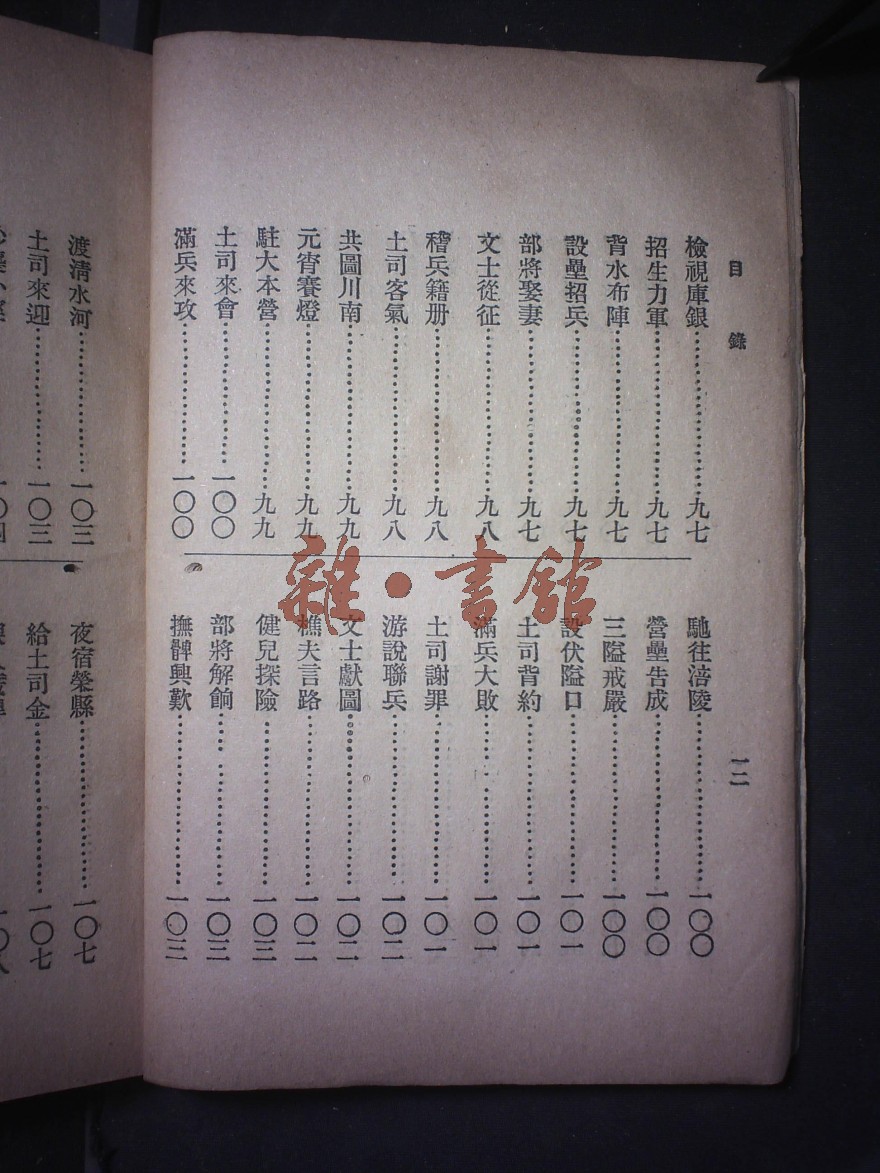 目錄
一二
檢視庫銀……九七
招生力軍……九七
背水布陣……九七
設壘招兵……九七
部將娶妻……九七
文士從征……九八
稽兵籍册……九八
土司客氣……九八
共圖川南……九九
元宵賽燈……九九
駐大本營……九九
土司來會……一〇〇
滿兵來攻……一〇〇
馳往涪陵……一〇〇
營壘告成……一〇〇
三隘戒嚴……一〇〇
設伏隘口……一〇一
土司背約……一〇一
滿兵大敗……一〇一
土司謝罪……一〇一
游說聯兵……一〇二
文士獻圖……一〇二
樵夫言路……一〇二
健兒探險……一〇三
部將解餉……一〇三
撫髀興歎……一〇三
渡清水河……一〇三
土司來迎……一〇三
夜宿榮縣……一〇七
給土司金……一〇七
雜·書館